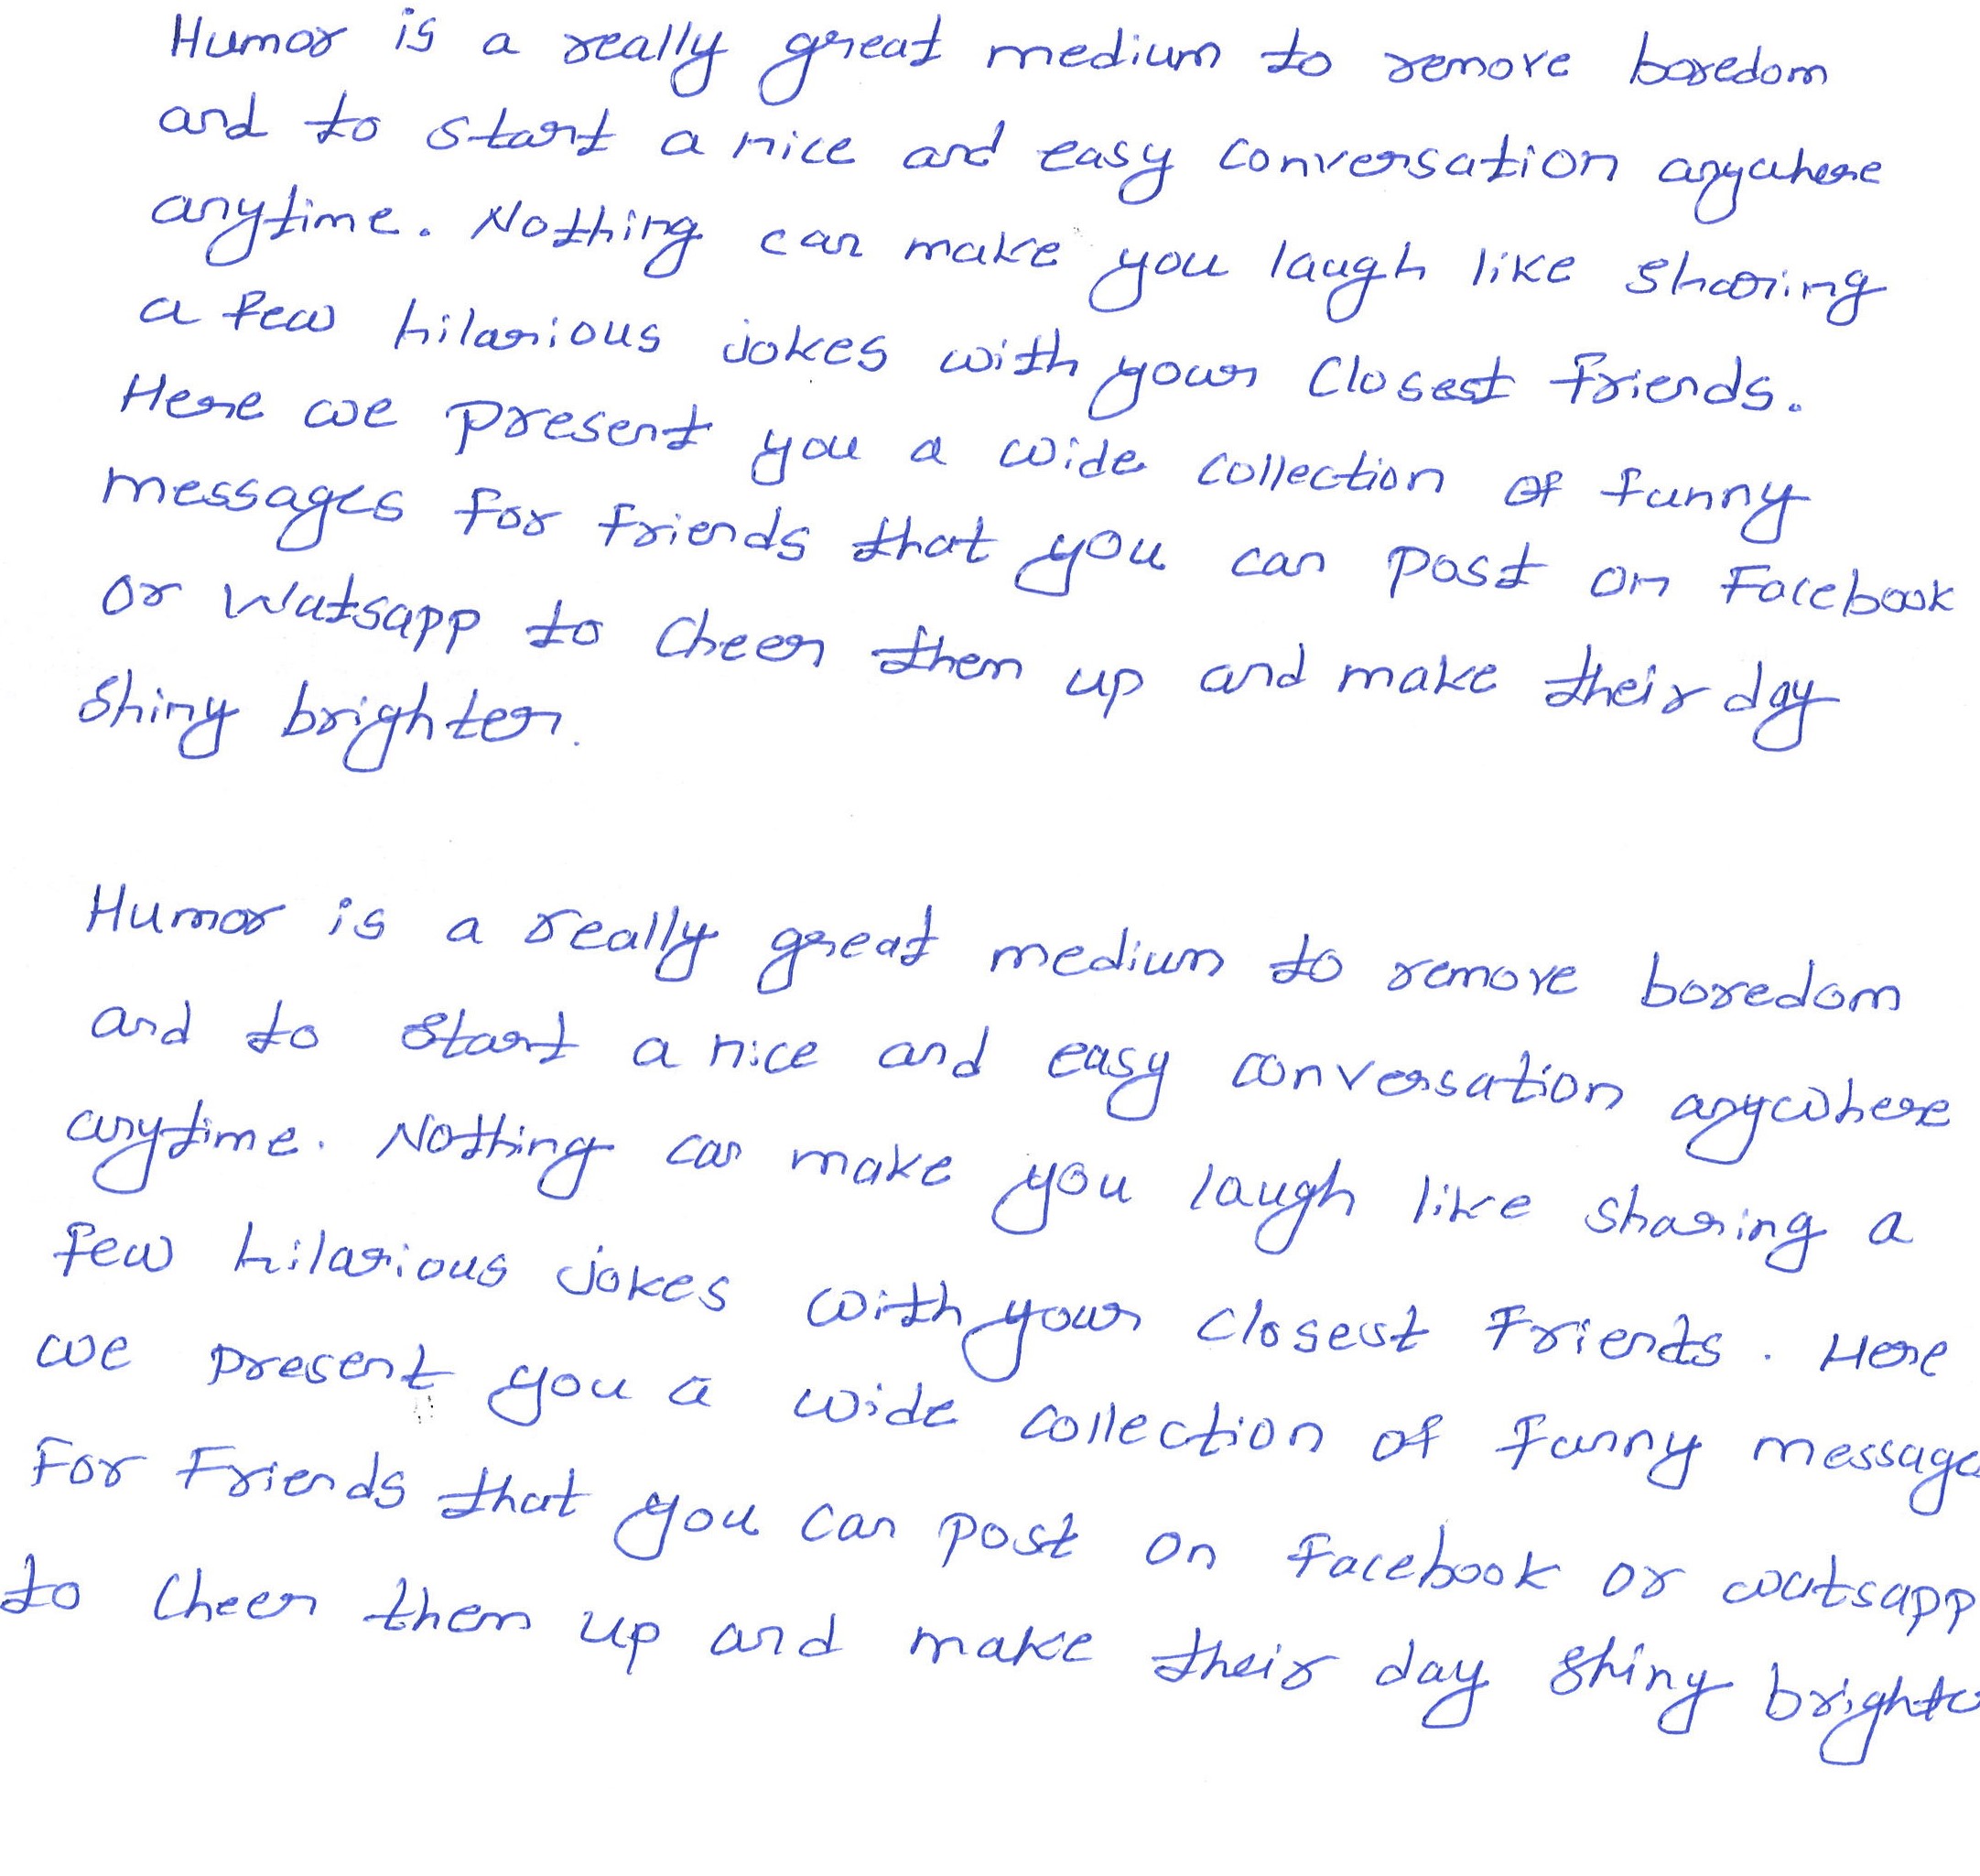 Humor is a really great medium to remove boredom
and to start a nice and easy conversation anywhere
anytime. Nothing can make you laugh like sharing
a few hilarious jokes with your closest friends.
Here we present you a wide collection of funny
messages for friends that you can post on Facebook
or Watsapp to cheer them up and make their day
shiny brighter.
Humor is a really great medium to remove boredom
and to start a nice and easy conversation anywhere
anytime. Nothing can make you laugh like sharing a
few hilarious jokes with your closest friends. Here
we present you a wide collection of funny message
for friends that you can post on facebook or watsapp
to cheer them up and make their day shiny brighte